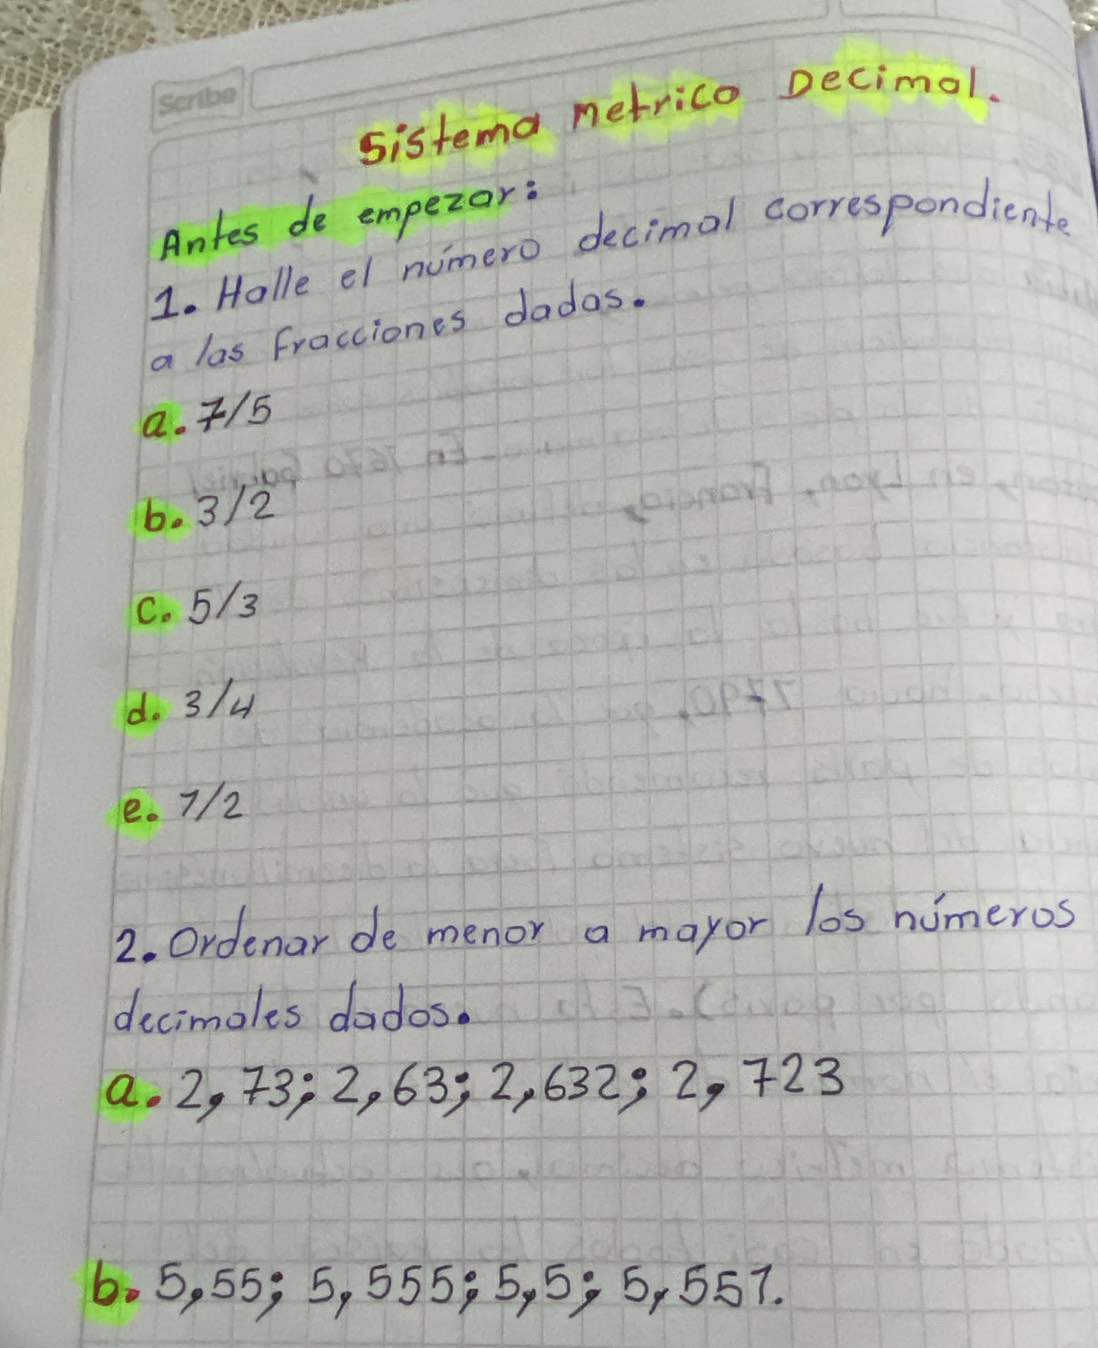 Scribe
Sistema metrico Decimal.
Antes de empezar:
1. Halle el número decimal correspondiente
a las fracciones dadas.
a. 7/5
b. 3/2
c. 5/3
d. 3/4
e. 7/2
2. Ordenar de menor a mayor los números
decimales dados.
a. 2,73; 2,63; 2,632; 2,723
b. 5,55; 5,555; 5,5; 5,551.